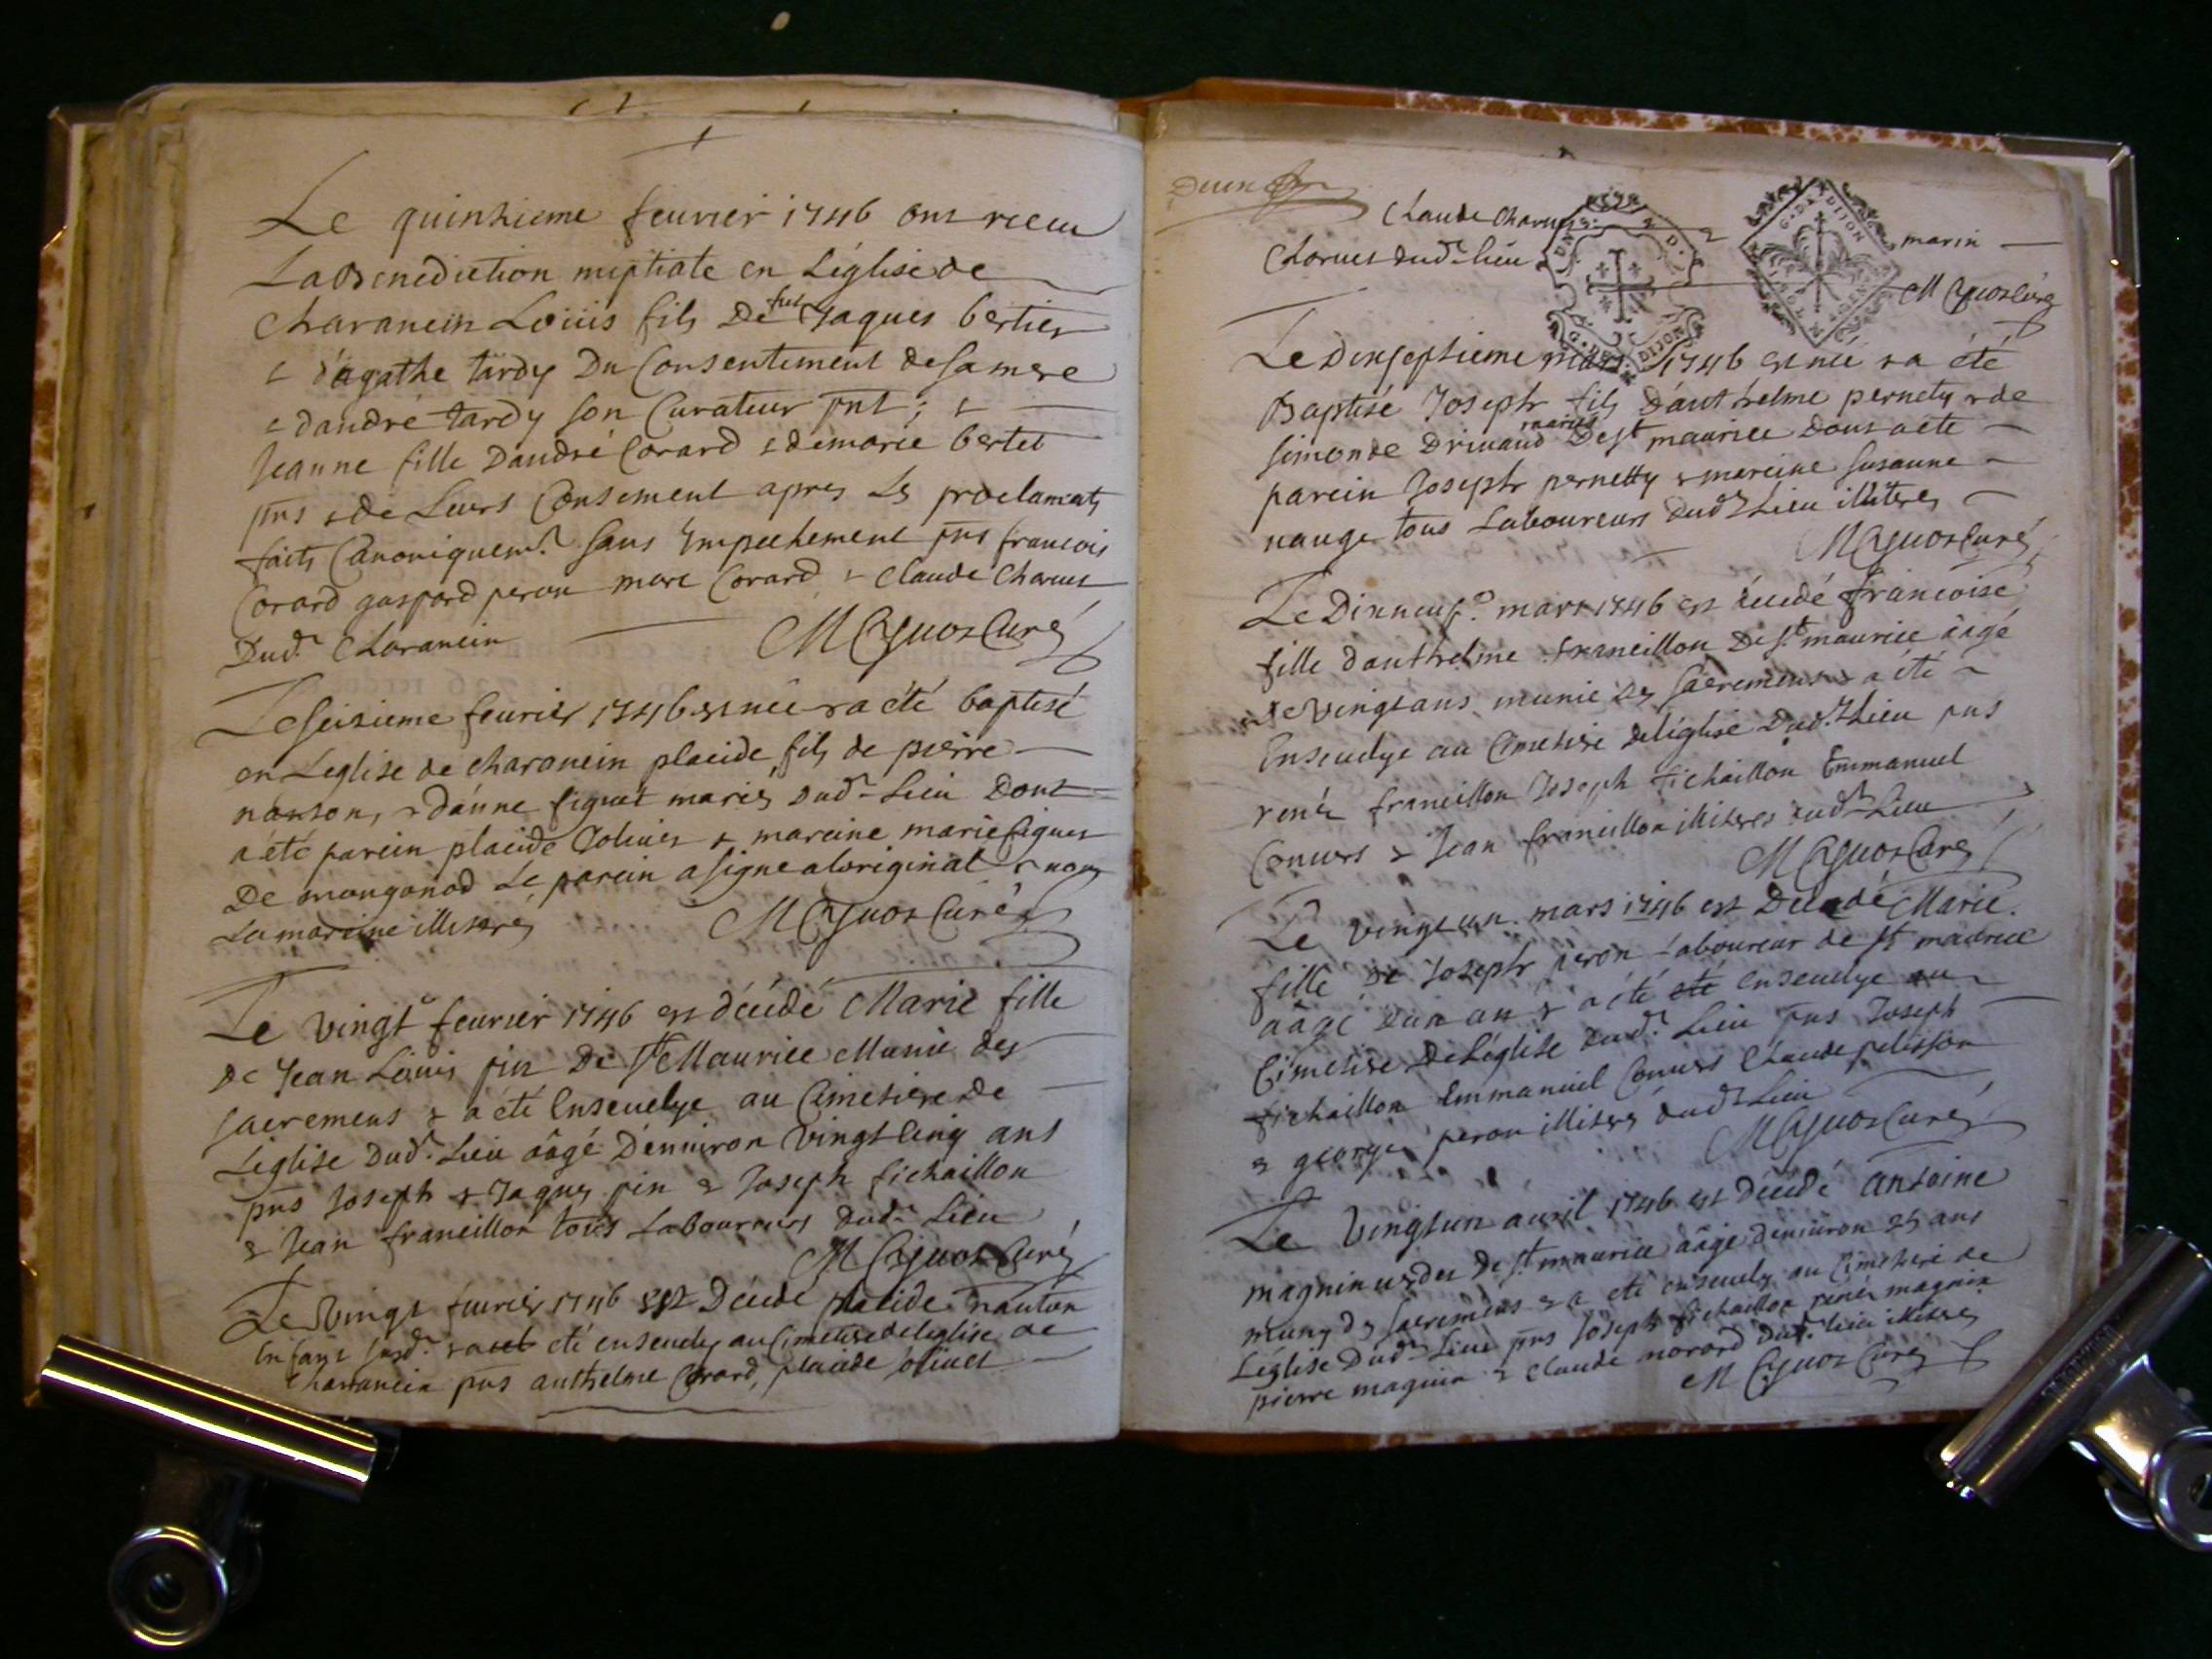 Le quinzieme feurier 1746 ont recu
La Benediction nuptiale en L'église de
Charancin Loüis fils De feu Jaques bertier
& d'agathe tardy Du Consentement de sa mere
& dandré tardy son Curateur pnt; &
Jeanne fille Dandré Corard & de marie bertet
pns & de Leurs Consement apres Les proclamats
faits Canoniquemt. sans Empechement pns francois
Corard gaspard peron marc Corard & Claude Charuet
Dud. Charancin
M Cyuoz Curé
Le seizieme feurier 1746 est née & a été baptisé
en Leglise de charancin placide fils de pierre
nanton, & d'anne figuet mariés dud. Lieu Dont
a été parein placide Joliuet & mareine marie figuet
De mongonod Le parein a signe aloriginal & non
La mareine illiterés
M Cyuoz Curé
Le Vingt feurier 1746 est décédé Marie fille
De Jean Loüis pin De St Maurice Munie des
sacremens & a été Enseuelye au Cimetiere de
L'église Dud. Lieu âagé D'enuiron Vingt Cinq ans
pns Joseph & Jaques pin & Joseph fichaillon
& Jean francillon tous Laboureurs Dud. Lieu
M Cyuoz Curé
Le Vingt féurier 1746 est Décédé placide nanton
Enfant susd. & a été enseuely au Cimetiere de leglise de
Charrancin pns anthelme Corard, placide oliuet
Claude Charuet
marin
Charuet dud. lieu
M Cyuoz Curé
G. DE DIJON
Le Dixseptieme mars 1746 est né & a été
Baptisé Joseph fils D'anthelme pernety & de
simonde Driuaud mariés De St maurice Dont a été
parein Joseph pernetty & mareine susanne
nauge tous Laboureurs dud. Lieu illiterés
M Cyuoz Curé
Le Dixneuf.e mars 1746 est décédé francoise
fille danthelme francillon De St. maurice âagé
de Vingt ans munie des sacremens & a été
Enseuelye au Cimetiere de léglise Dud. Lieu pns
renéz francillon Joseph fichaillon Emmanuel
Conuers & Jean francillon illiteres dud. Lieu
M Cyuoz Curé
Le Vingt un mars 1746 est Décédé Marie
fille de Joseph peron Laboureur de St maurice
aâgé d'un an & a été été enseuelye au
Cimetiere De L'église dud. Lieu pns Joseph
fichaillon Emmanuel Conuers Claude pelisson
& george peron illiterés dud. Lieu
M Cyuoz Curé
Le Vingtun auril 1746 est Décédé antoine
magnin De St maurice aâgé denuiron 25 ans
muny des sacremens & a été enseuely au Cimetiere de
L'église Dud. Lieu pns Joseph fichaillon renéz magnin
pierre magnin & Claude morard Dud. lieu illiterés
M Cyuoz Curé